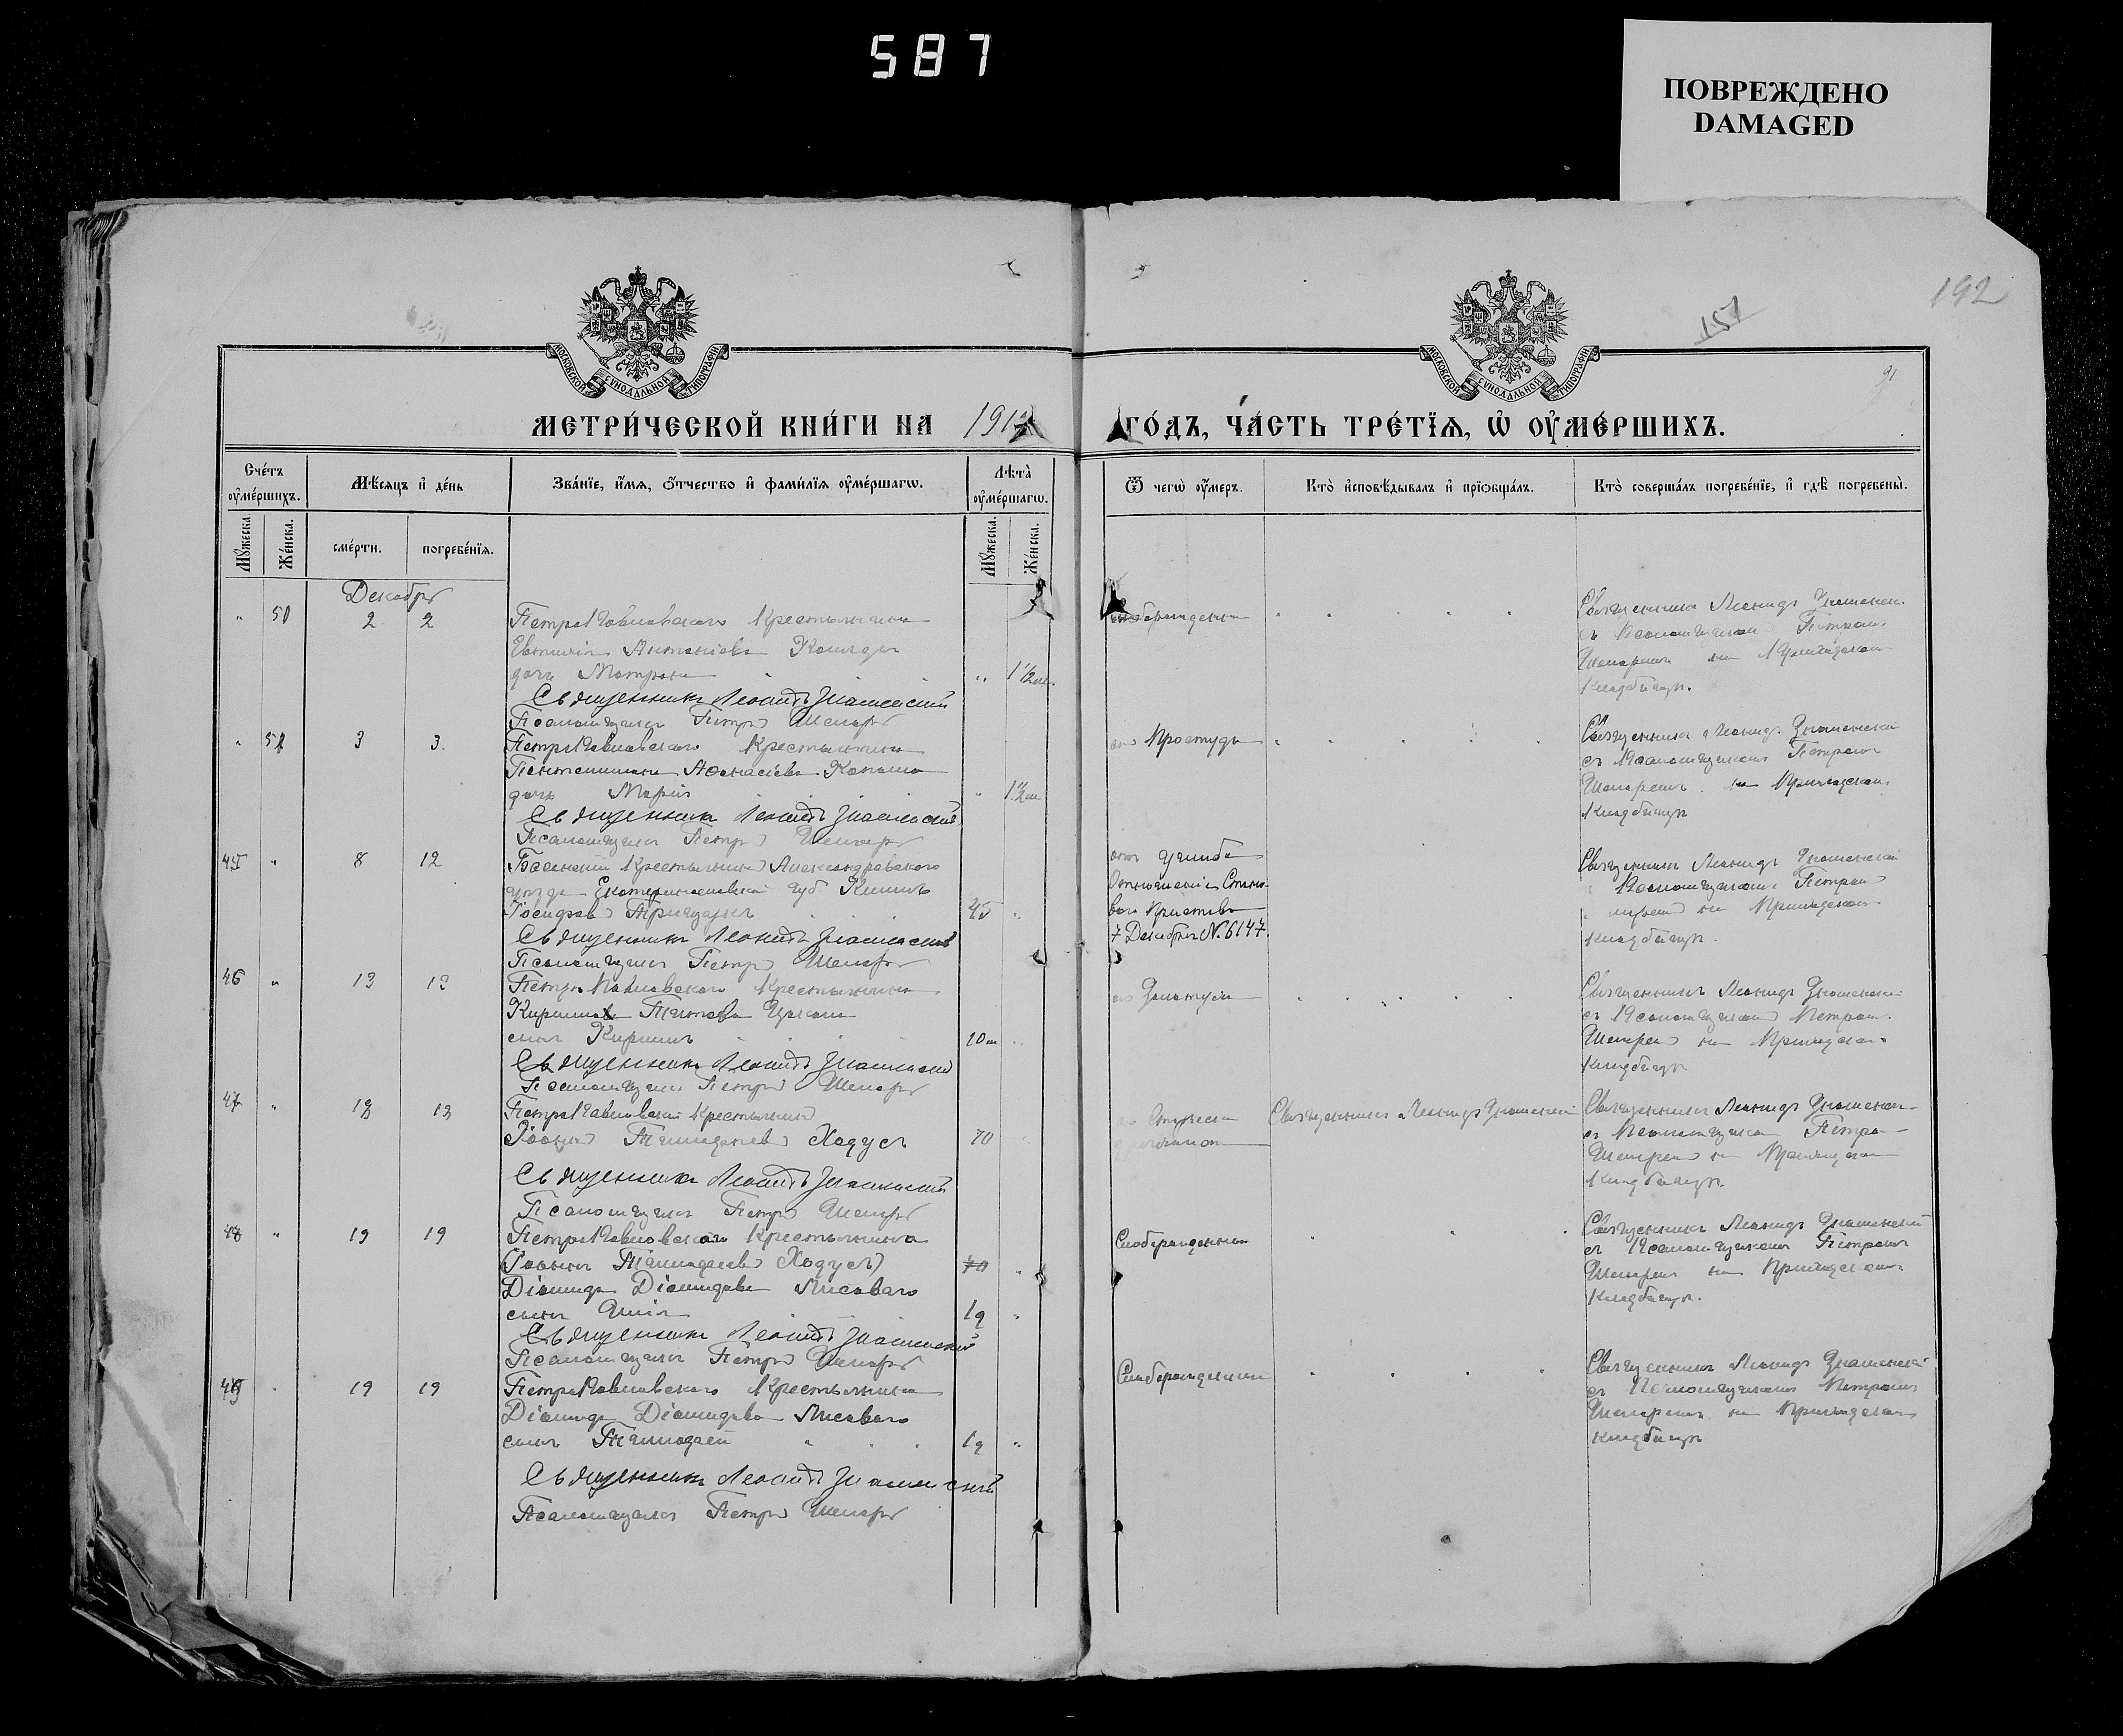 587
ПОВРЕЖДЕНО
DAMAGED
192
151
МОСКОВСКОЙ СѴНОДАЛЬНОЙ ТИПОГРАФІИ
МОСКОВСКОЙ СѴНОДАЛЬНОЙ ТИПОГРАФІИ
МЕТРИ́ЧЕСКОЙ КНИ́ГИ НА 191
ГО́ДЪ, ЧА́СТЬ ТРЕ́ТІЯ, Ѡ҆ ОУ҆МЕ́РШИХЪ.
Сче́тъ оу҆ме́ршихъ.
Мѣ́сяцъ и҆ де́нь
Зва́нїе, и҆́мя, ѻ҆́тчество и҆ фами́лїя оу҆ме́ршагѡ.
Лѣта̀ оу҆ме́ршагѡ.
Ѿ чегѡ̀ оу҆́меръ.
Кто̀ и҆сповѣ́дывалъ и҆ прїѻбща́лъ.
Кто̀ соверша́лъ погребе́нїе, и҆ гдѣ̀ погребены̀.
Мꙋ́жеска.
Же́нска.
сме́рти.
погребе́нїя.
Мꙋ́жеска.
Же́нска.
Декабрь
" 50 2 2 Петропавловскаго крестьянина
Евтихія Антоніева
дочь Матрона " 1 1/2
Священникъ Леонидъ Знаменскій
Псаломщикъ Петръ Шепаръ
слаборожденія
Священникъ Леонидъ Знаменскій
съ Псаломщикомъ Петромъ
Шепаремъ на Приходскомъ
Кладбищѣ.
" 51 3 3 Петропавловскаго крестьянина
Пантелимона Афанасіева
дочь Марія " 1 1/2
Священникъ Леонидъ Знаменскій
Псаломщикъ Петръ Шепаръ
отъ Простуды
Священникъ Леонидъ Знаменскій
съ Псаломщикомъ Петромъ
Шепаремъ на Приходскомъ
Кладбищѣ
45 " 8 12 крестьянинъ Александровскаго
уѣзда Екатеринославской губ
45 "
Священникъ Леонидъ Знаменскій
Псаломщикъ Петръ Шепаръ
отъ ушиба
Отношеніе Стано-
ваго Пристава
7 Декабря № 6147.
Священникъ Леонидъ Знаменскій
Псаломщикомъ Петромъ
на Приходскомъ
Кладбищѣ.
46 " 13 13 Петропавловскаго крестьянина
Кирилла Титова
сынъ Кириллъ 10
Священникъ Леонидъ Знаменскій
Псаломщикъ Петръ Шепаръ
Священникъ Леонидъ Знаменскій
съ Псаломщикомъ Петромъ
Шепаремъ на Приходскомъ
Кладбищѣ
47 " 13 13 Петропавловскій крестьянинъ
Іоаннъ Ходусъ 70
Священникъ Леонидъ Знаменскій
Псаломщикъ Петръ Шепаръ
Священникъ Леонидъ Знаменскій
Священникъ Леонидъ Знаменскій
съ Псаломщикомъ Петромъ
Шепаремъ на Приходскомъ
Кладбищѣ.
48 " 19 19 Петропавловскаго крестьянина
(Іоаннъ Ходусъ) 70
Діомида Діомидова Лисоваго
сынъ 1 "
Священникъ Леонидъ Знаменскій
Псаломщикъ Петръ Шепаръ
Слаборожденія
Священникъ Леонидъ Знаменскій
съ Псаломщикомъ Петромъ
Шепаремъ на Приходскомъ
Кладбищѣ.
49 " 19 19 Петропавловскаго крестьянина
Діомида Діомидова Лисоваго
сынъ 1 "
Священникъ Леонидъ Знаменскій
Псаломщикъ Петръ Шепаръ
Слаборожденія
Священникъ Леонидъ Знаменскій
съ Псаломщикомъ Петромъ
Шепаремъ на Приходскомъ
Кладбищѣ